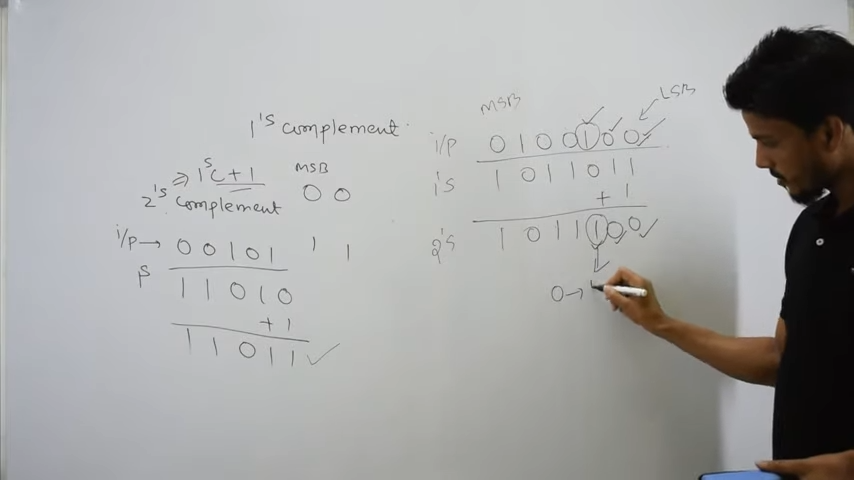 1's complement
⇒ 1's C + 1
2's complement
MSB
0 0
i/p → 0 0 1 0 1
1 1
1's
1 1 0 1 0
+ 1
1 1 0 1 1 ✓
MSB
LSB
i/p 0 1 0 0 1 0 0
1's 1 0 1 1 0 1 1
+ 1
2's 1 0 1 1 1 0 0
0 →